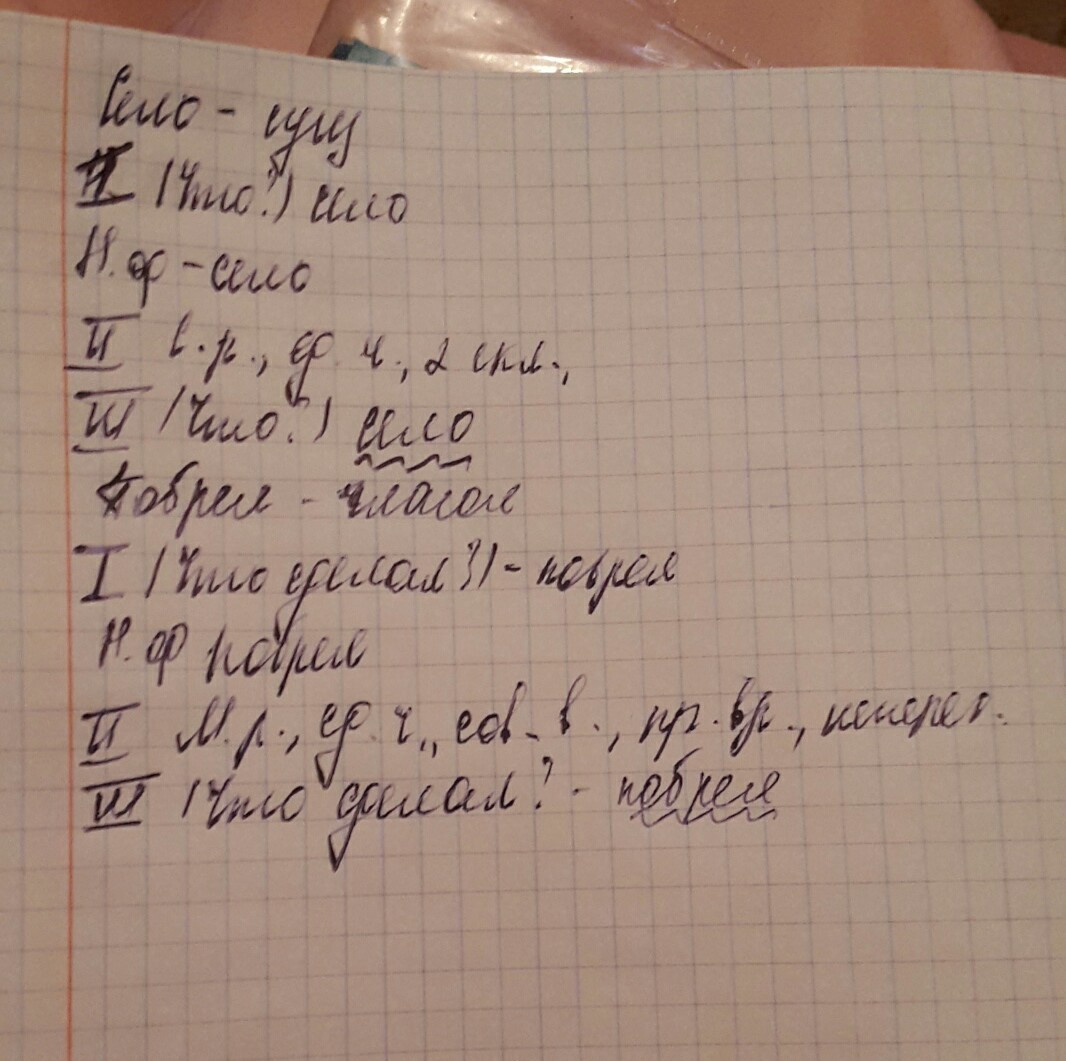 Село - сущ
I (Что?) село
Н.ф - село
II с.р., ед.ч., 2 скл.,
III (Что?) село
Побрел - глагол
I (Что сделал?) - побрел
Н.ф побрел
II М.р., ед.ч., сов. в., пр. вр., неперех.
III (Что сделал? - побрел